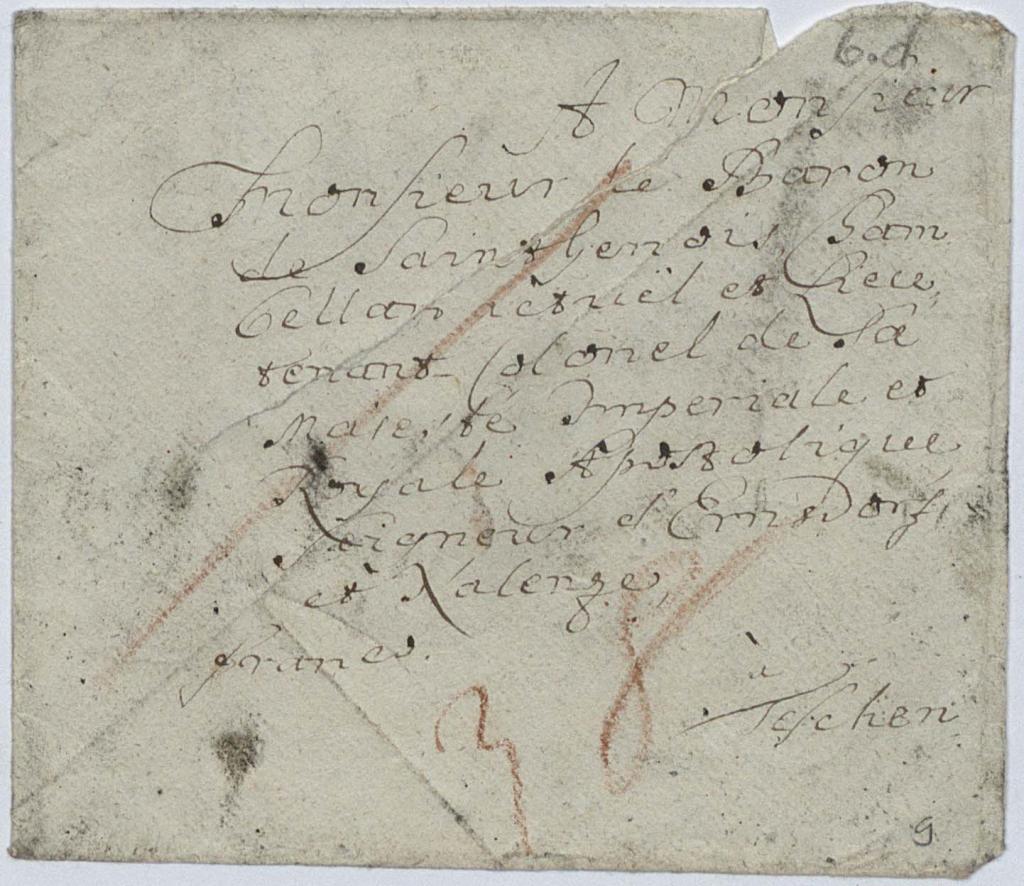 6.d.
A Monsieur
Monsieur le Baron
de Saint Genois, Cam
bellan actuël et Lieu,
tenant Colonel de Sa
Majesté Imperiale et
Royale Apostolique
Seigneur d'Ernsdorf,
et Kalenze,
franco.
à
Teschen
9